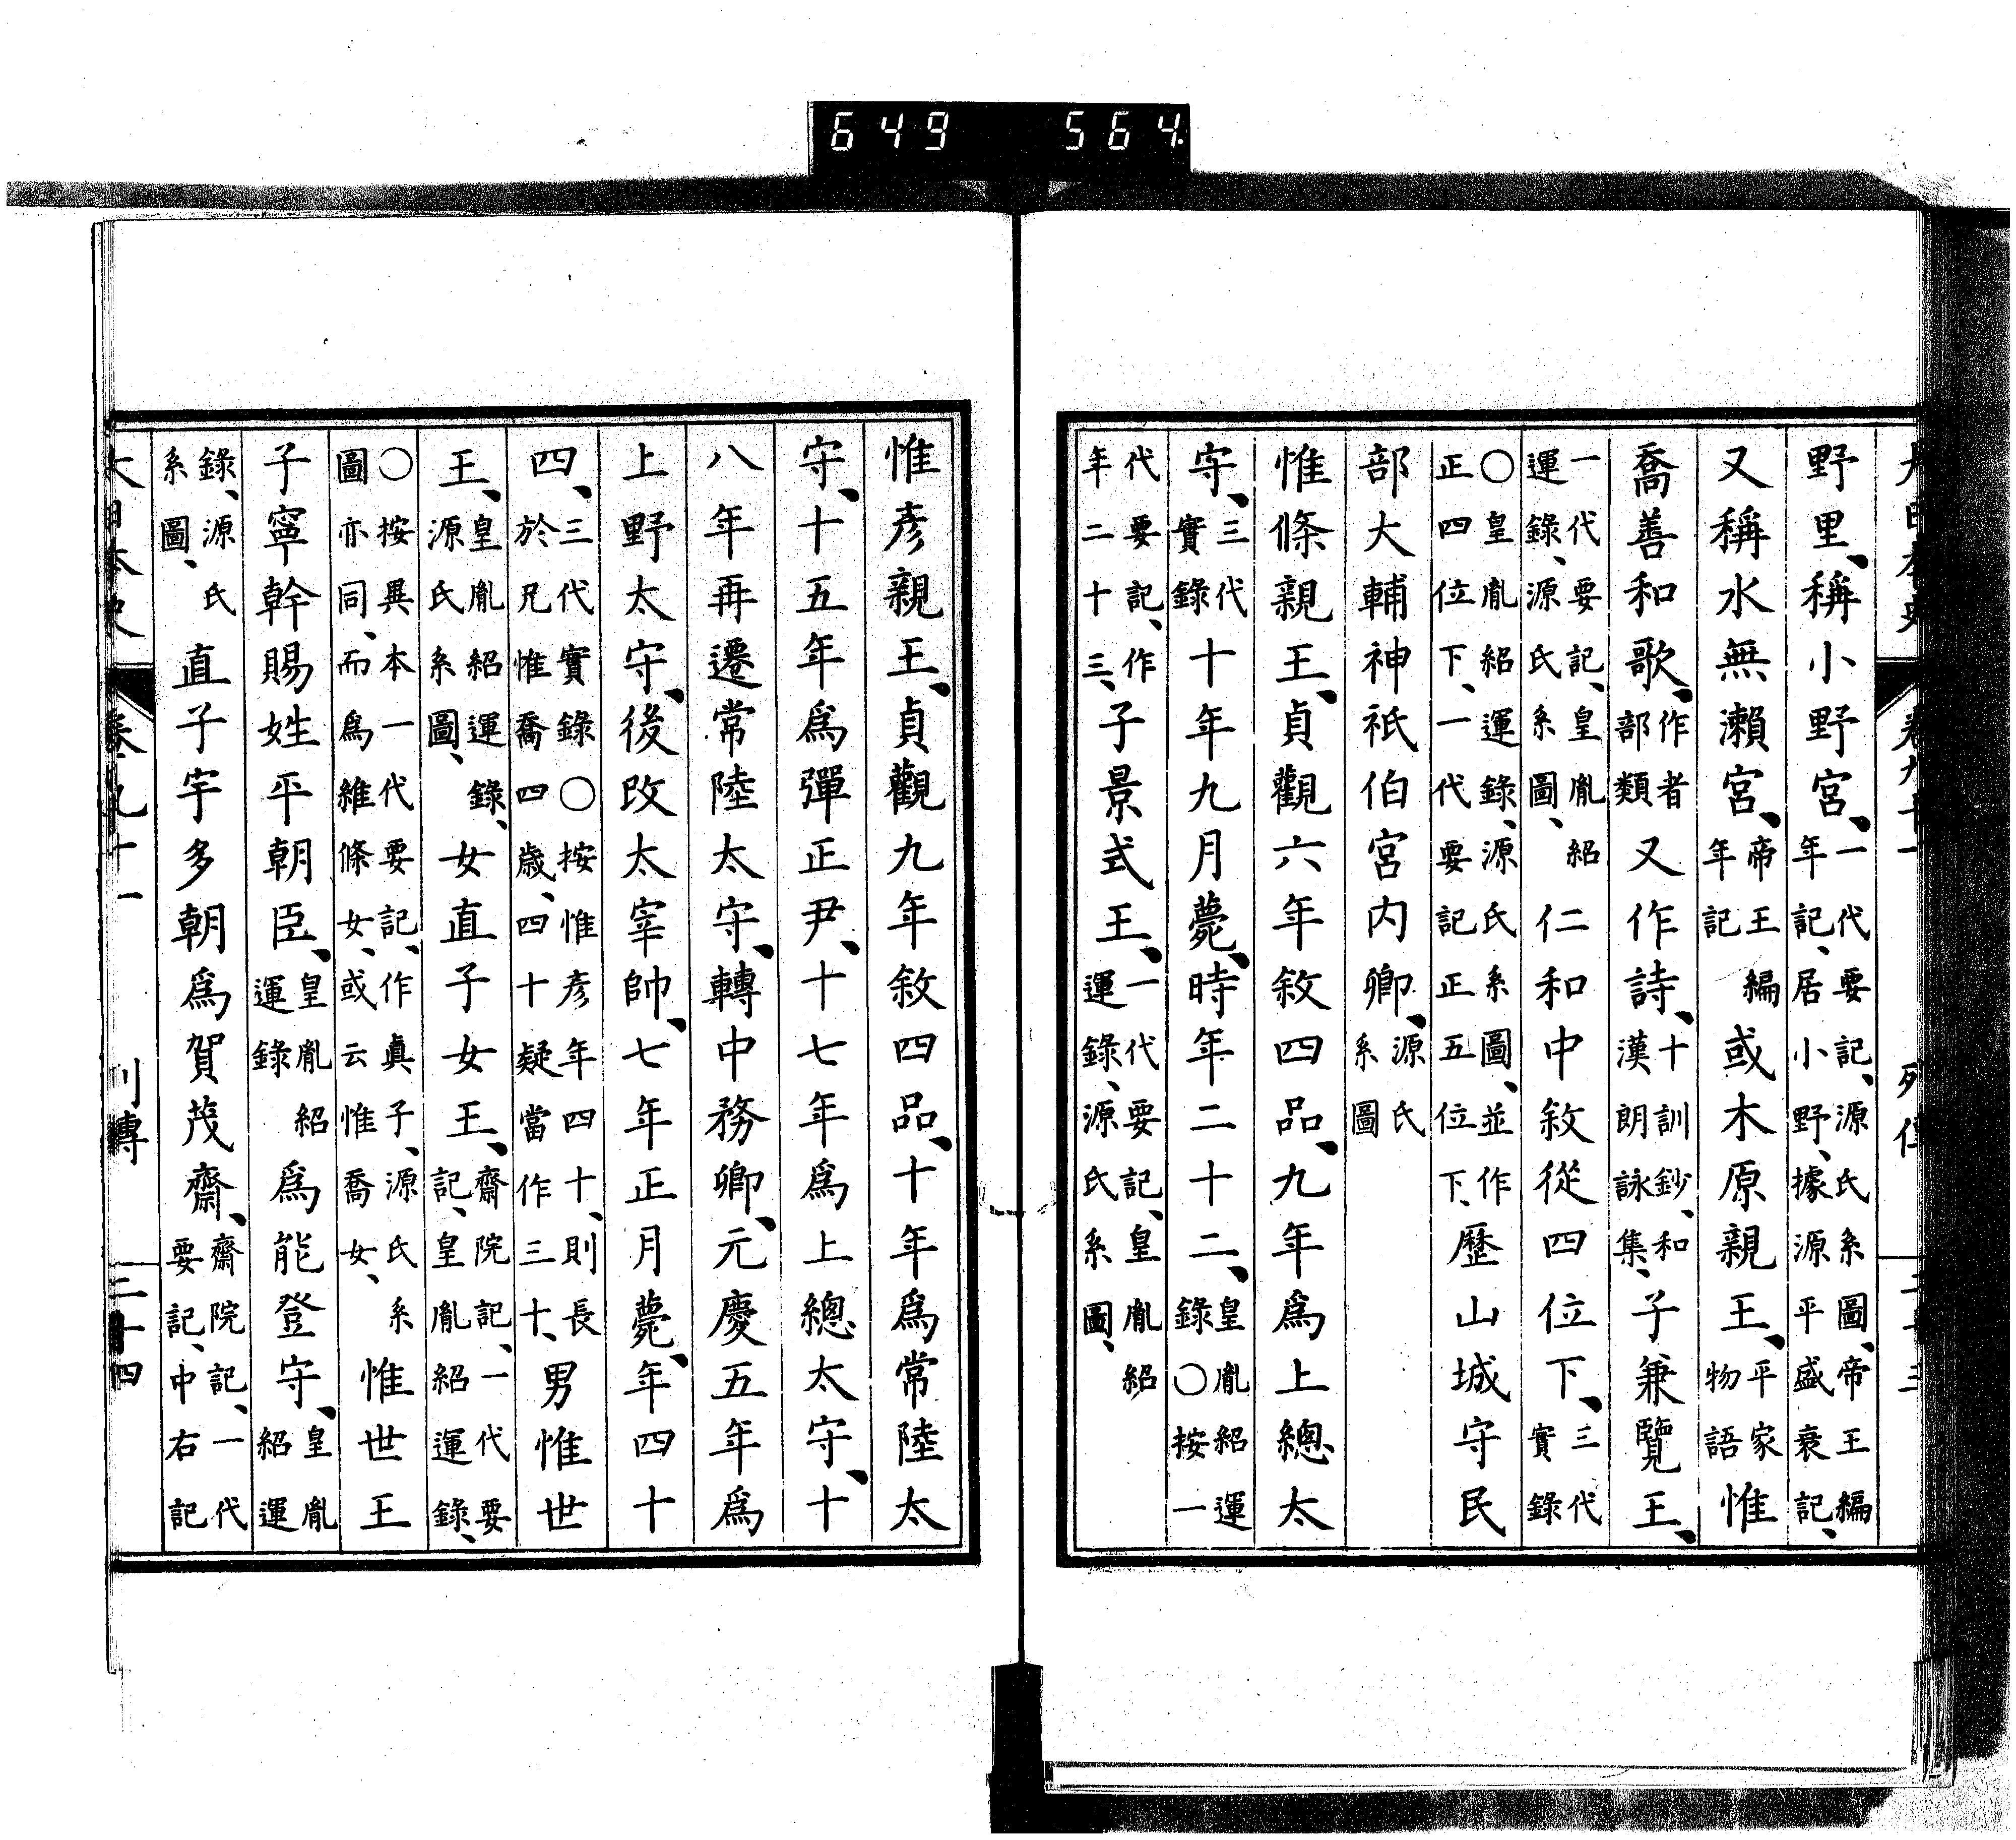 649 564.
大日本史 卷九十一 列傳 二十三
野里、稱小野宮、一代要記、源氏系圖、帝王編年記、居小野、據源平盛衰記、
又稱水無瀨宮、帝王編年記或木原親王、平家物語惟
喬善和歌、作者部類又作詩、十訓鈔、和漢朗詠集、子兼覽王、
一代要記、皇胤紹運錄、源氏系圖、仁和中敘從四位下、三代實錄
○皇胤紹運錄、源氏系圖、並作正四位下、一代要記正五位下、歷山城守民
部大輔神祇伯宮内卿、源氏系圖
惟條親王、貞觀六年敘四品、九年爲上總太
守、三代實錄十年九月薨、時年二十二、皇胤紹運錄○按一
代要記、作年二十三、子景式王、一代要記、皇胤紹運錄、源氏系圖、
惟彥親王、貞觀九年敘四品、十年爲常陸太
守、十五年爲彈正尹、十七年爲上總太守、十
八年再遷常陸太守、轉中務卿、元慶五年爲
上野太守、後改太宰帥、七年正月薨、年四十
四、三代實錄○按惟彥年四十、則長於兄惟喬四歲、四十疑當作三十、男惟世
王、皇胤紹運錄、源氏系圖、女直子女王、齋院記、一代要記、皇胤紹運錄、
○按異本一代要記、作眞子、源氏系圖亦同、而爲維條女、或云惟喬女、惟世王
子寧幹賜姓平朝臣、皇胤紹運錄爲能登守、皇胤紹運
錄、源氏系圖、直子宇多朝爲賀茂齋、齋院記、一代要記、中右記
大日本史 卷九十一 列傳 二十四